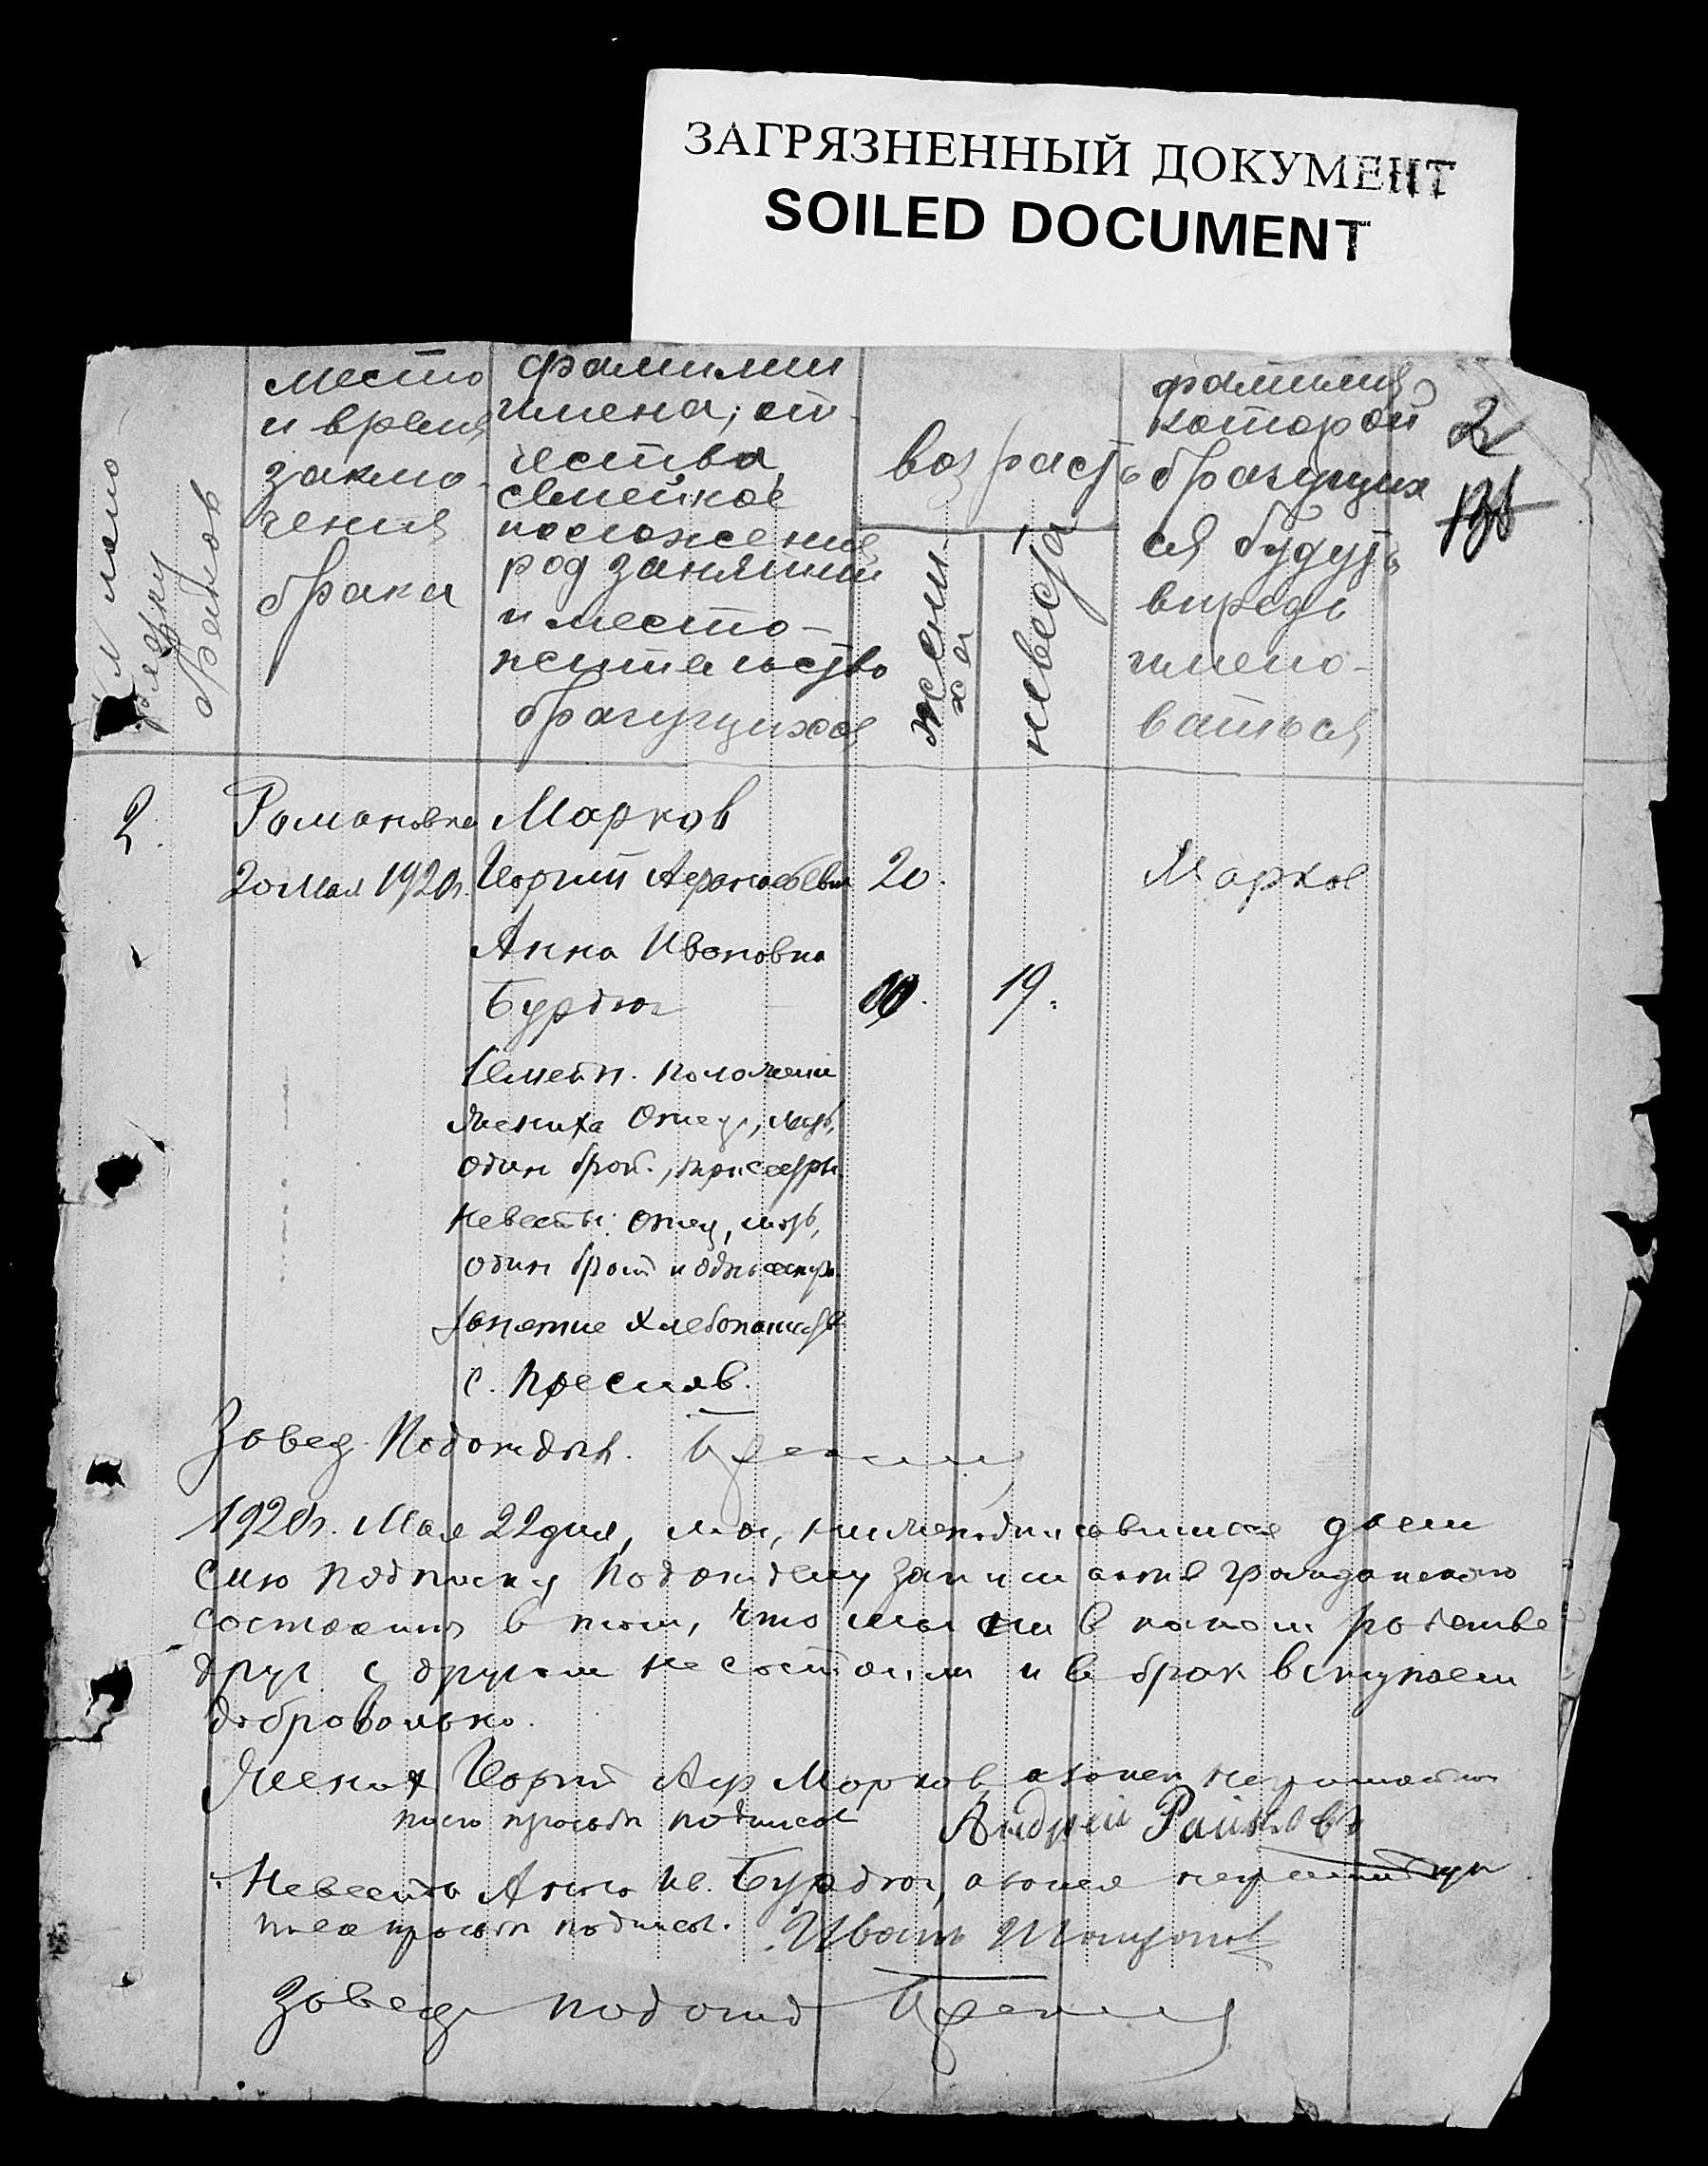 ЗАГРЯЗНЕННЫЙ ДОКУМЕНТ
SOILED DOCUMENT
2
браков
место
и время
заклю-
чения
брака
фамилии
имена, от-
чества,
семейное
положение
род занятий
и место-
жительство
брачущихся
возрастъ
жени-
ха
невеста
фамилия
которой
брачущих
ся будутъ
впредь
имено-
ваться
2.
Романовка
20 Мая 1920г.
Марков
Георгий Афанасьевич
20.
Марков
Анна Ивановна
Бурдюг
19.
Семейн. положение
жениха Отец, мать,
один брат, три сестры
невесты: отец, мать,
один брат и одна сестра
Занятие хлебопашество
с.
Завед. Подотдел.
1920г. Мая 22 дня, мы, нижеподписавшиеся даем
сию подписку Подотделу записи актов гражданского
состояния в том, что мы ни в каком родстве
друг с другом не состоим и в брак вступаем
добровольно.
Жених Георгий Аф Марков, а за неграмотного
по его просьбе подписал Андрей Райковъ
Невеста Анна Ив. Бурдюг, а за нее неграмотную
по ея просьбе подписал. Иванъ
Завед подотд